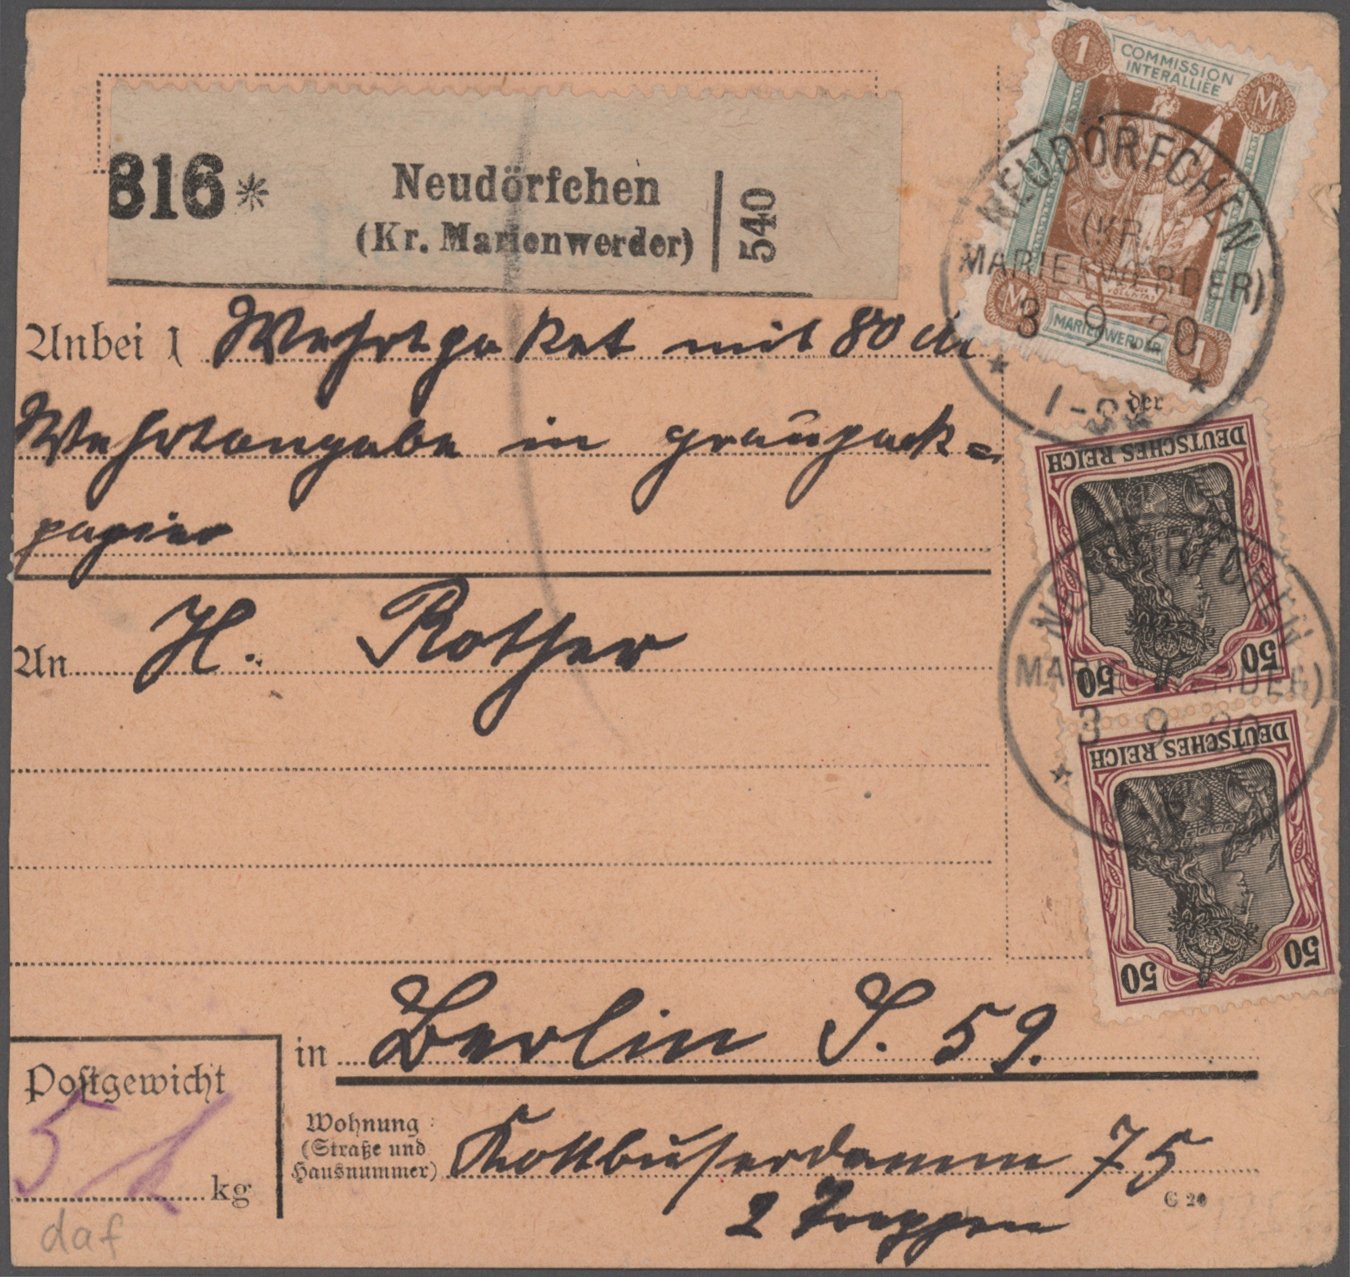 816 *
Neudörfchen
(Kr. Marienwerder)
540
1 COMMISSION INTERALLIÉE M.
M. MARIENWERDER 1
NEUDÖRFCHEN
(KR.
MARIENWERDER)
3 9 20
* 1-
*
Anbei 1 Wehrtpaket mit 80 M
Wehrtangabe in graupack=
papier
der
An H. Rother
DEUTSCHES REICH
50 50
NEUDÖRFCHEN
MARIENWERDER)
3 9 20
*
DEUTSCHES REICH
50 50
in Berlin S. 59.
Postgewicht
5
kg
Wohnung
(Straße und
Hausnummer)
Kottbuserdamm 75
2 Treppen
C 20
daf